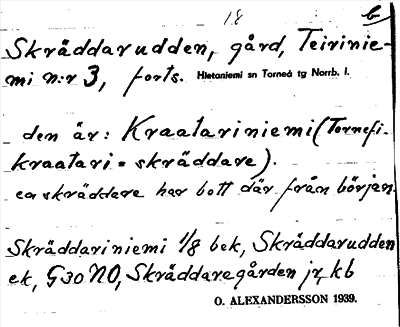 18 b
Skräddarudden, gård, Teirinie-
mi n:r 3, forts. Hietaniemi sn Torneå tg Norrb. l.
den är: Kraatariniemi (Tornefi.
kraatari = skräddare).
en skräddare har bott där från början.
Skräddariniemi 1/8 bek, Skräddarudden
ek, G30 NO, Skräddaregården jr, kb
O. ALEXANDERSSON 1939.